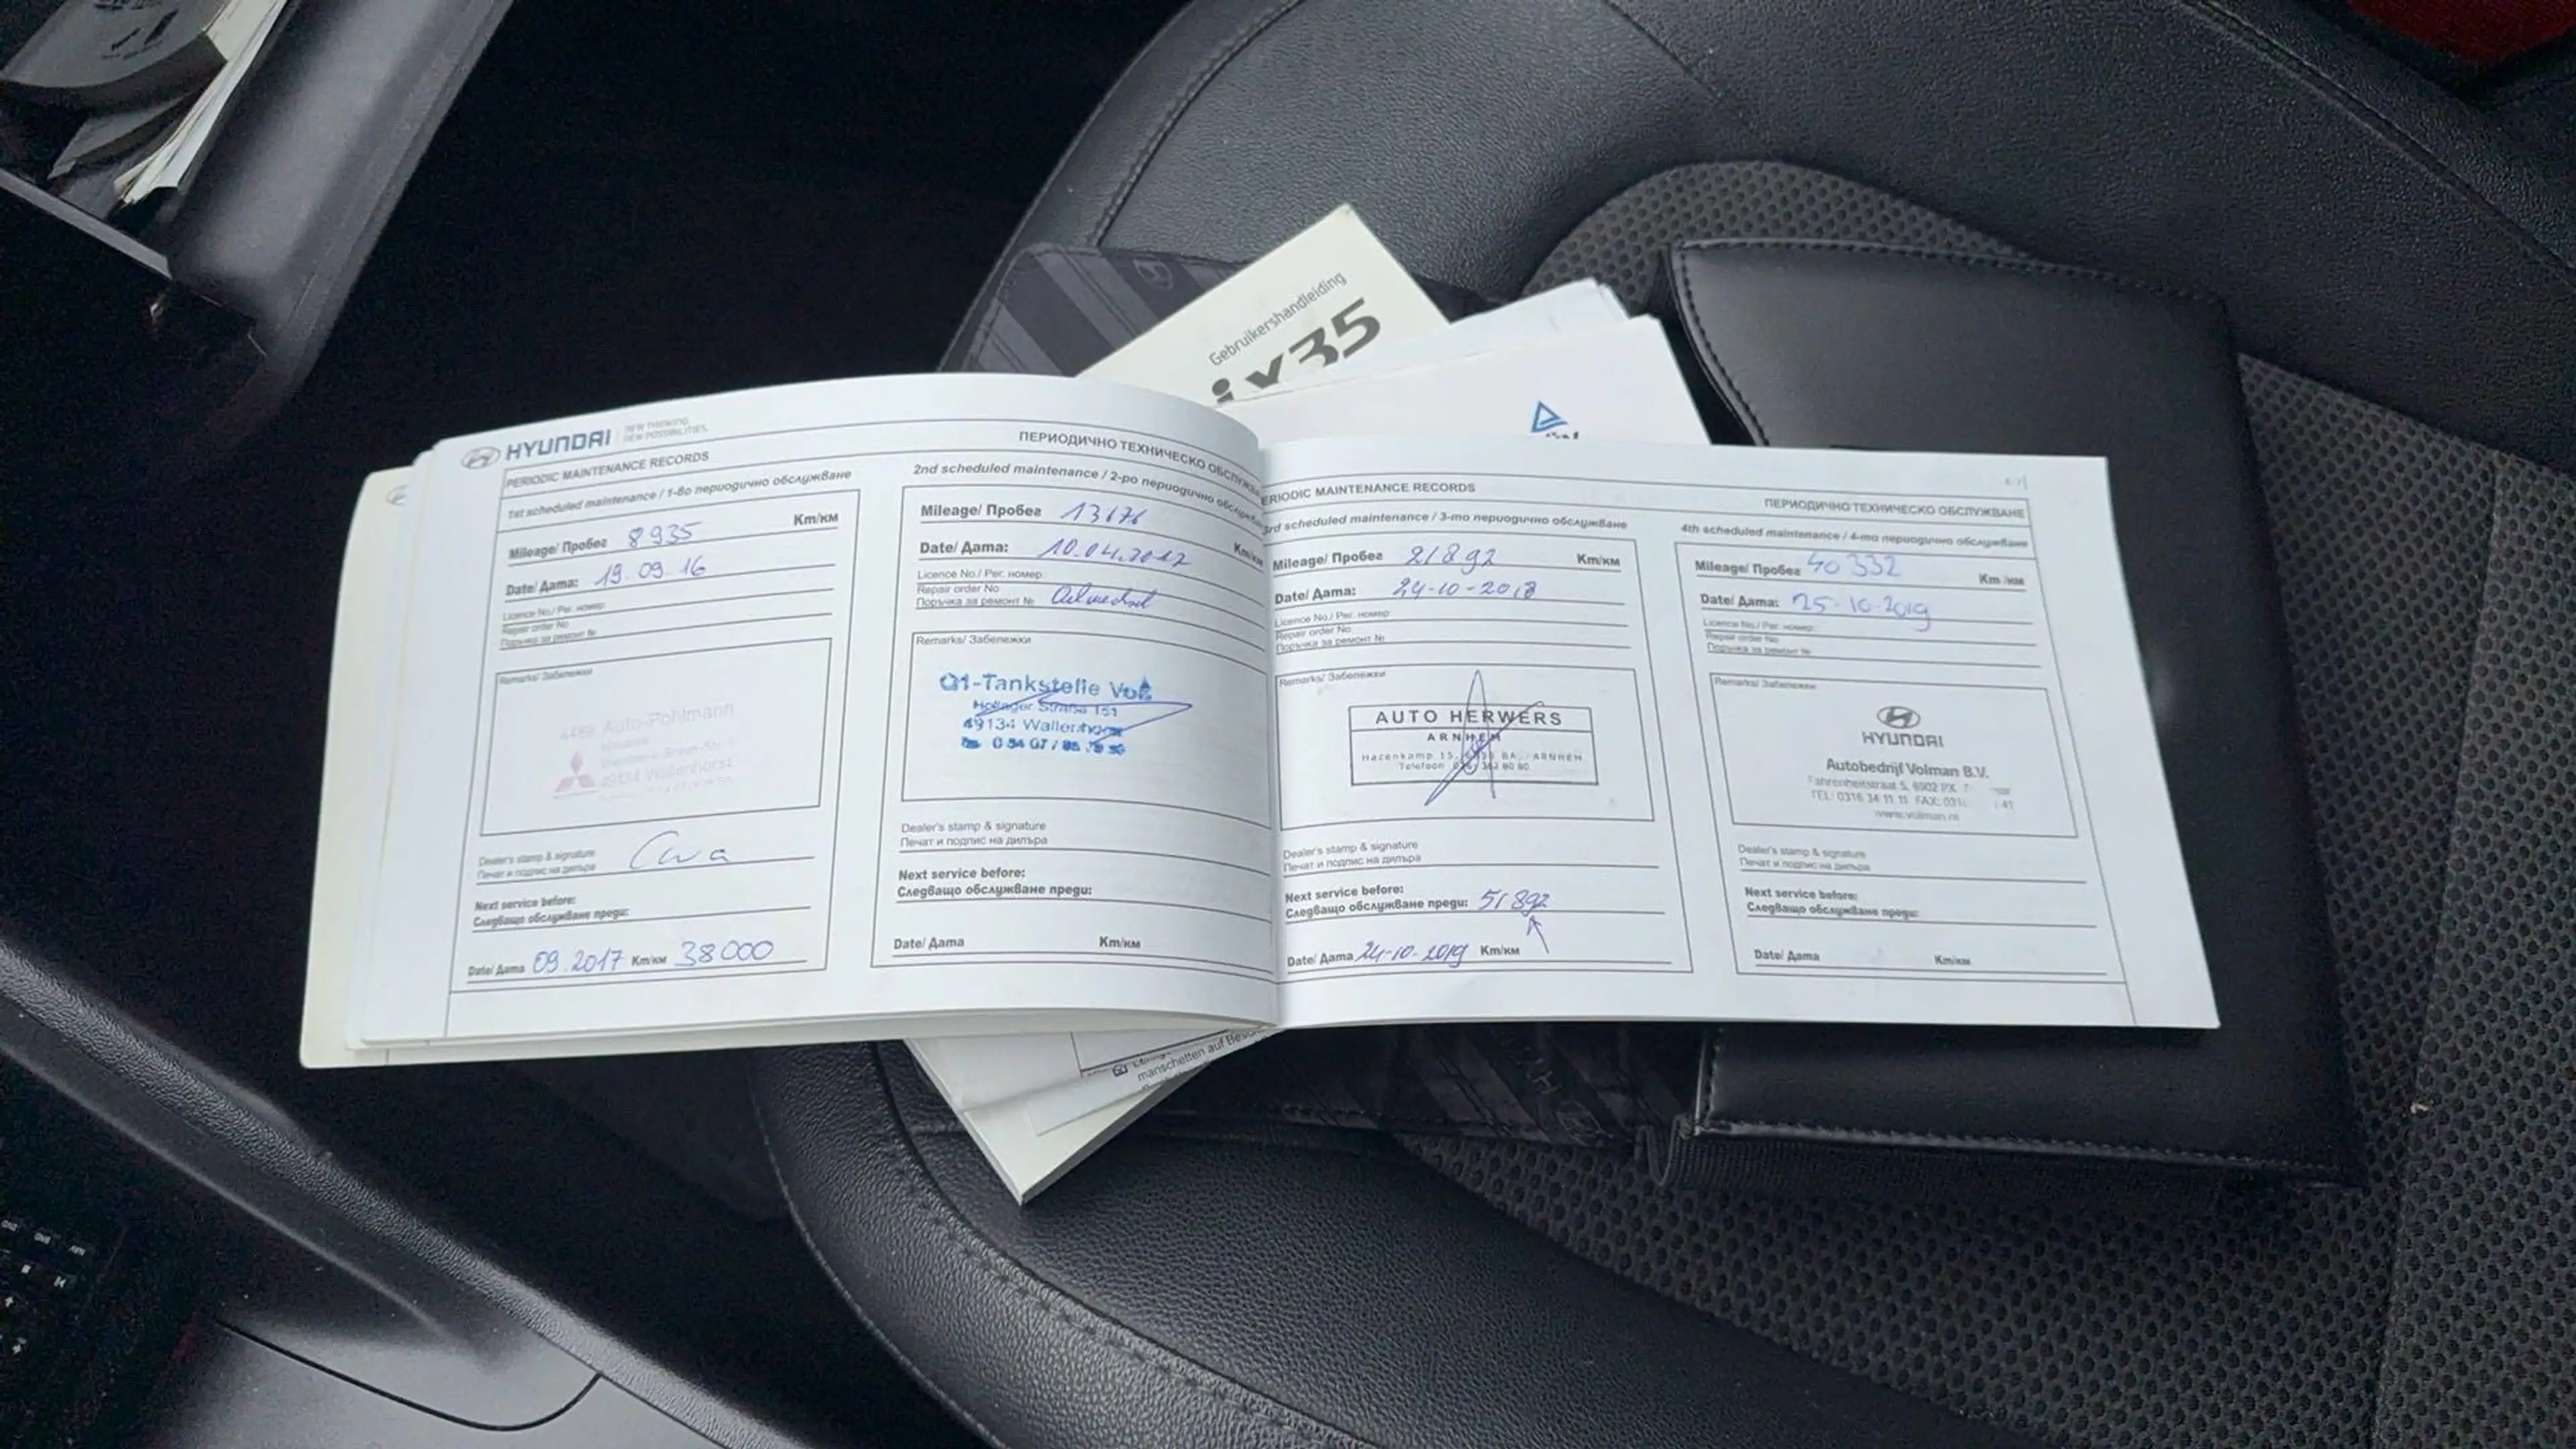 Gebruikershandleiding
ix35
HYUNDAI
NEW THINKING.
NEW POSSIBILITIES.
PERIODIC MAINTENANCE RECORDS
ПЕРИОДИЧНО ТЕХНИЧЕСКО ОБСЛУЖВА
1st scheduled maintenance / 1-во периодично обслужване
Mileage/ Пробег 8935 Km/км
Date/ Дата: 19.09.16
Licence No./ Рег. номер:
Repair order No
Поръчка за ремонт №
Remarks/ Забележки
Auto-Pohlmann
49134 Wallenhorst
Dealer's stamp & signature
Печат и подпис на дилъра
Next service before:
Следващо обслужване преди:
Date/ Дата 09.2017 Km/км 38000
2nd scheduled maintenance / 2-ро периодично обслужван
Mileage/ Пробег 13676
Km/км
Date/ Дата: 10.04.2017
Licence No./ Рег. номер:
Repair order No
Поръчка за ремонт № Ölwechsel
Remarks/ Забележки
Q1-Tankstelle Voß
Hollager Straße 151
49134 Wallenhorst
Dealer's stamp & signature
Печат и подпис на дилъра
Next service before:
Следващо обслужване преди:
Date/ Дата Km/км
ERIODIC MAINTENANCE RECORDS
ПЕРИОДИЧНО ТЕХНИЧЕСКО ОБСЛУЖВАНЕ
3rd scheduled maintenance / 3-то периодично обслужване
Mileage/ Пробег 21892 Km/км
Date/ Дата: 24-10-2018
Licence No./ Рег. номер:
Repair order No
Поръчка за ремонт №
Remarks/ Забележки
AUTO HERWERS
ARNHEM
Hazenkamp 15, BA, ARNHEM
Telefoon
Dealer's stamp & signature
Печат и подпис на дилъра
Next service before:
Следващо обслужване преди: 51892
Date/ Дата 24-10-2019 Km/км
4th scheduled maintenance / 4-то периодично обслужване
Mileage/ Пробег 40332 Km/км
Date/ Дата: 25-10-2019
Licence No./ Рег. номер:
Repair order No
Поръчка за ремонт №
Remarks/ Забележки
HYUNDAI
Autobedrijf Volman B.V.
Fahrenheitstraat 5, 6902 PX
TEL: 0316 34 11 11 FAX:
www.volman.nl
Dealer's stamp & signature
Печат и подпис на дилъра
Next service before:
Следващо обслужване преди:
Date/ Дата Km/км
manschetten auf